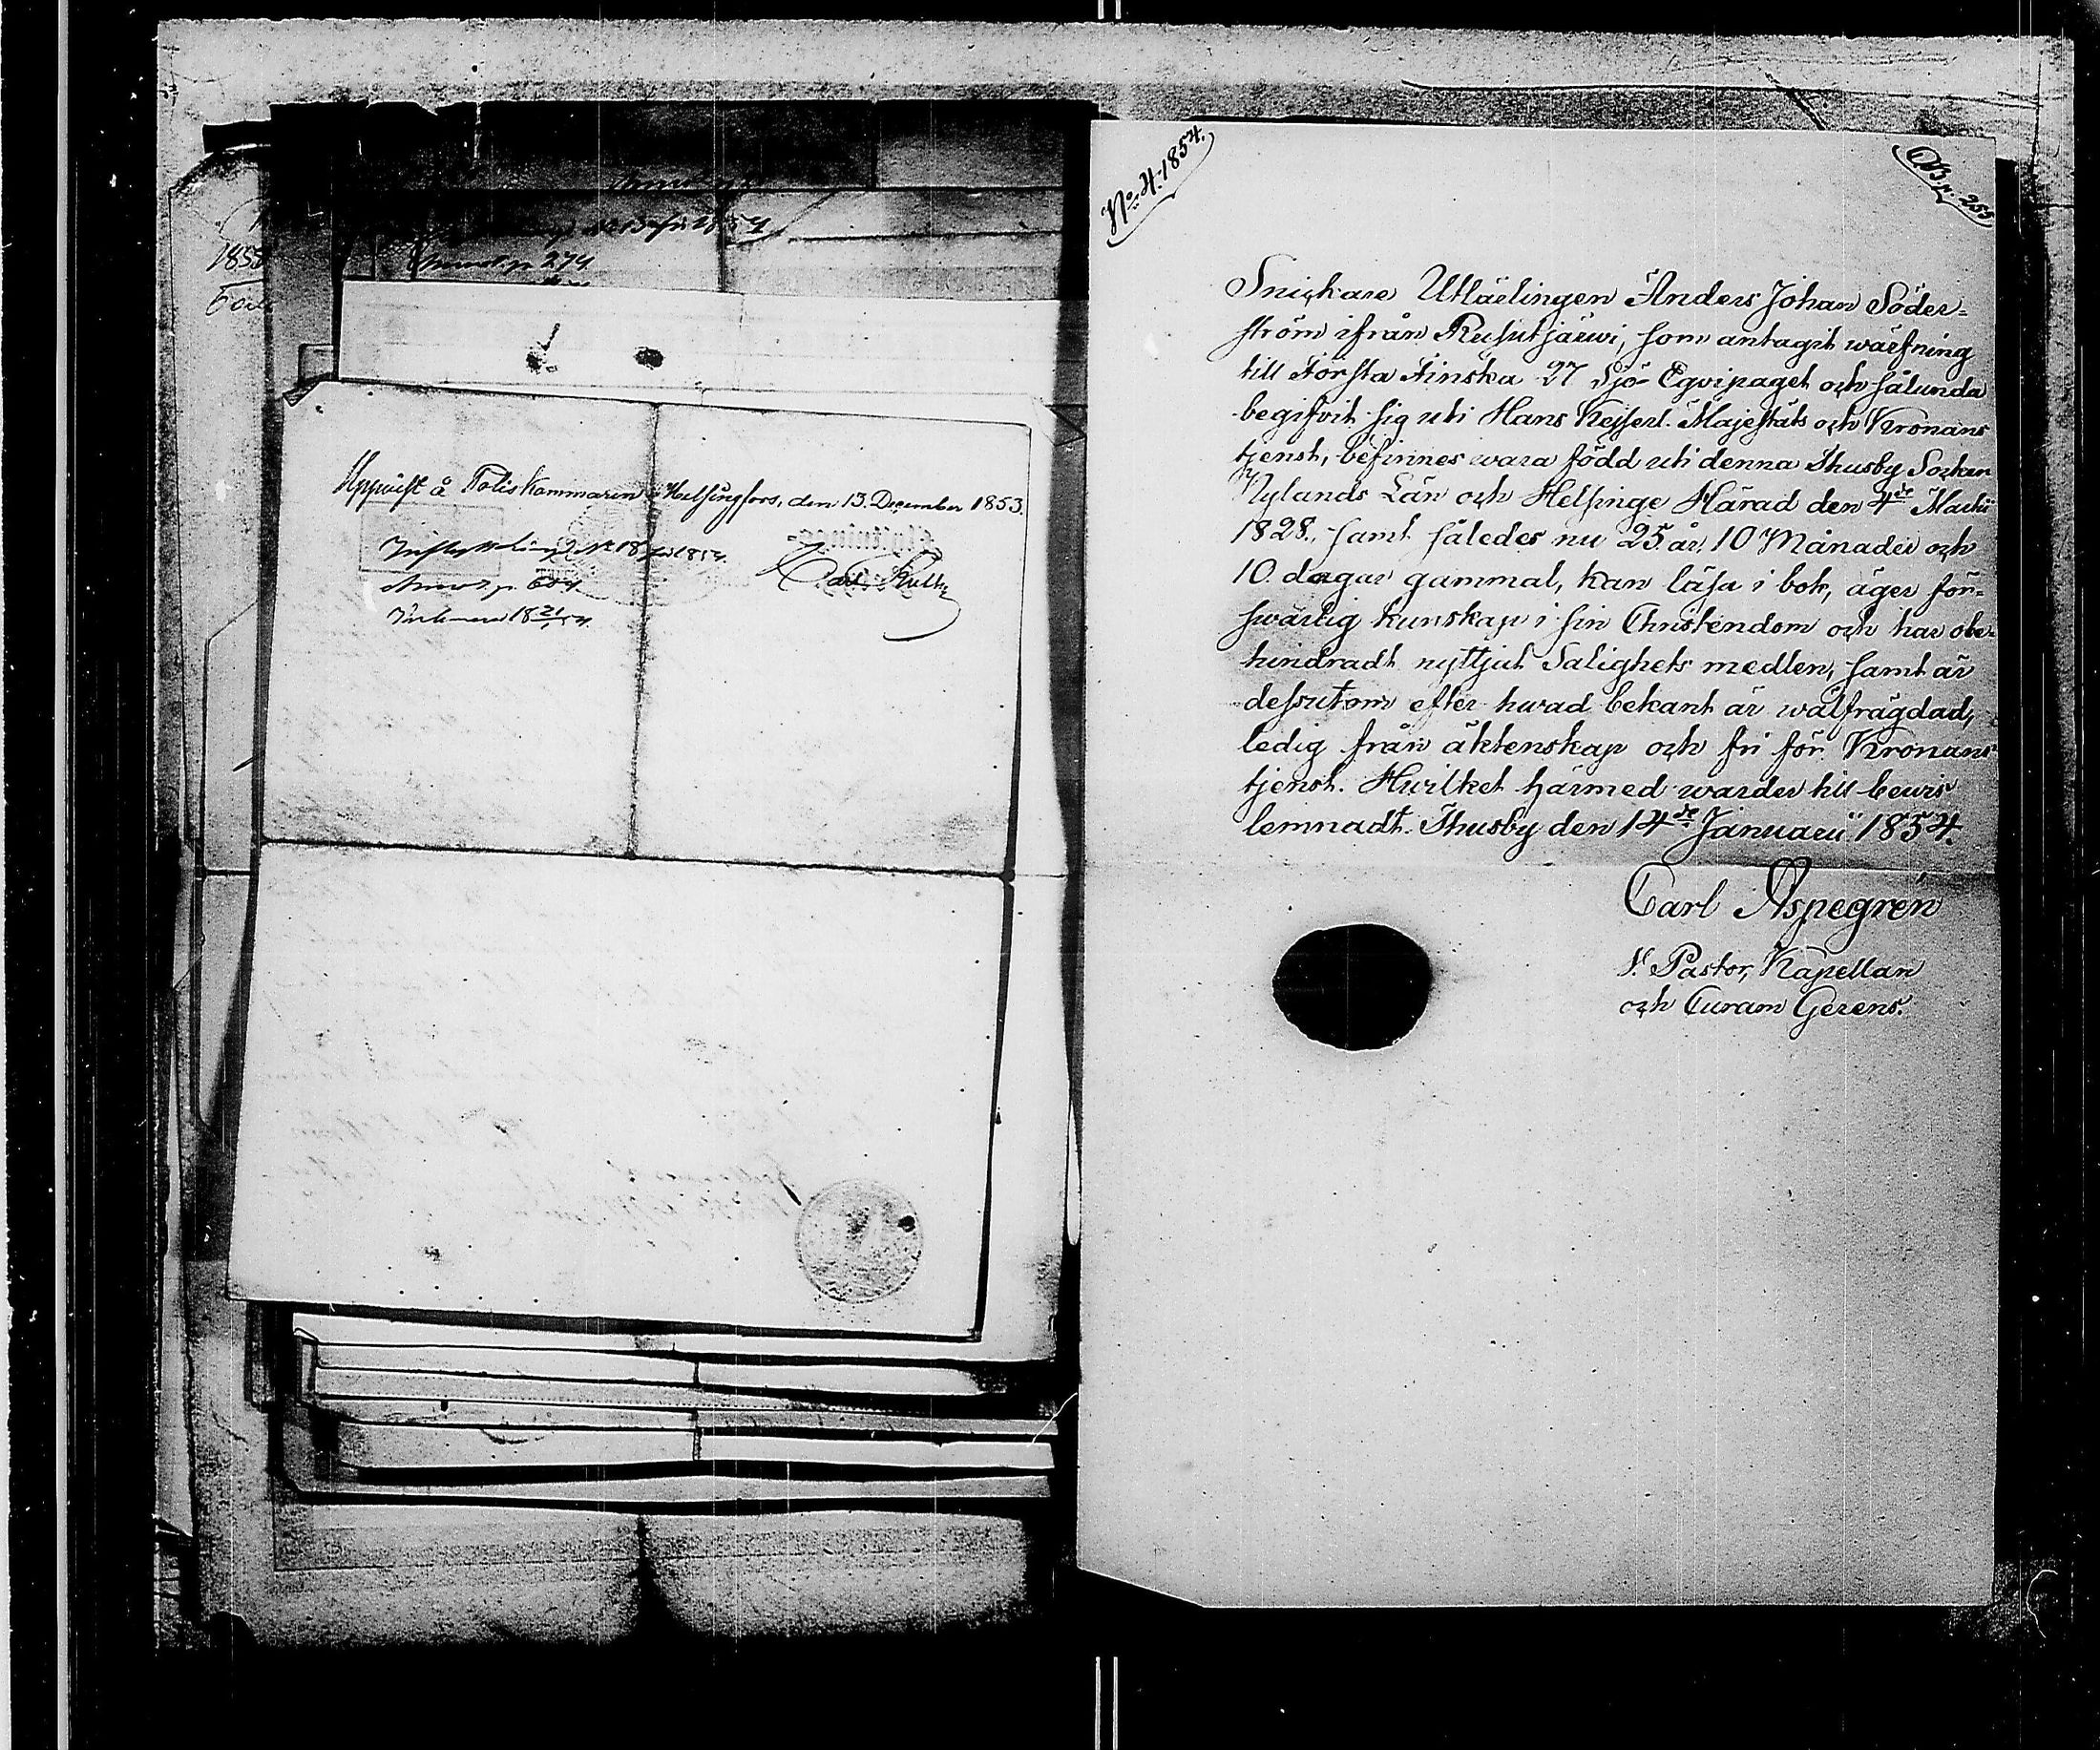 Uppvist å Poliskammaren i Helsingfors, den 13. December 1853.
Inflyttning N. 18 för 1854.
Carl
N:o 4. 1854.
Snickare Utlärlingen Anders Johan Söder-
ström ifrån Rusutjärwi, som antagit wärfning
till Första Finska 27 Sjö-Eqvipaget och sålunda
begifvit sig uti Hans Kejserl. Majestäts och Kronans
tjenst, befinnes wara född uti denna Thusby Sockn
Nylands Län och Helsinge Härad den 4de Martii
1828., samt således nu 25. år, 10 Månader och
10. dagar gammal, kan läsa i bok, äger för-
swarlig kunskap i sin Christendom och har obe-
hindradt nyttjat Salighets medlen, samt är
dessutom efter hwad bekant är wälfrägdad,
ledig från äktenskap och fri för Kronans
tjenst. Hwilket härmed warder till bewis
lemnadt. Thusby den 14de Januarii 1854.
Carl Aspegrén
V. Pastor, Kapellan
och Curam Gerens.